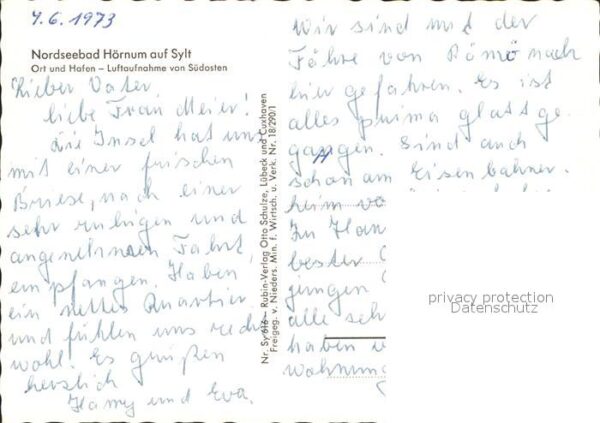 4.6.1973
Nordseebad Hörnum auf Sylt
Ort und Hafen – Luftaufnahme von Südosten
Lieber Vater,
liebe Frau Meier!
Die Insel hat uns
mit einer frischen
Briese, nach einer
sehr ruhigen und
angenehmen Fahrt,
empfangen. Haben
ein nettes Quartier
und fühlen uns recht
wohl. Es grüßen
herzlich
und Eva.
Nr. Sy 616 – Rubin-Verlag Otto Schulze, Lübeck und Cuxhaven
Freigeg. v. Nieders. Min. f. Wirtsch. u. Verk. Nr. 18/290/1
Wir sind mit der
Fähre von Römö nach
hier gefahren. Es ist
alles prima glatt ge
gangen. Sind auch
schon am Eisenbahner.
heim vo
In Han
bester
jungen
alle seh
haben
wohnung
privacy protection
Datenschutz